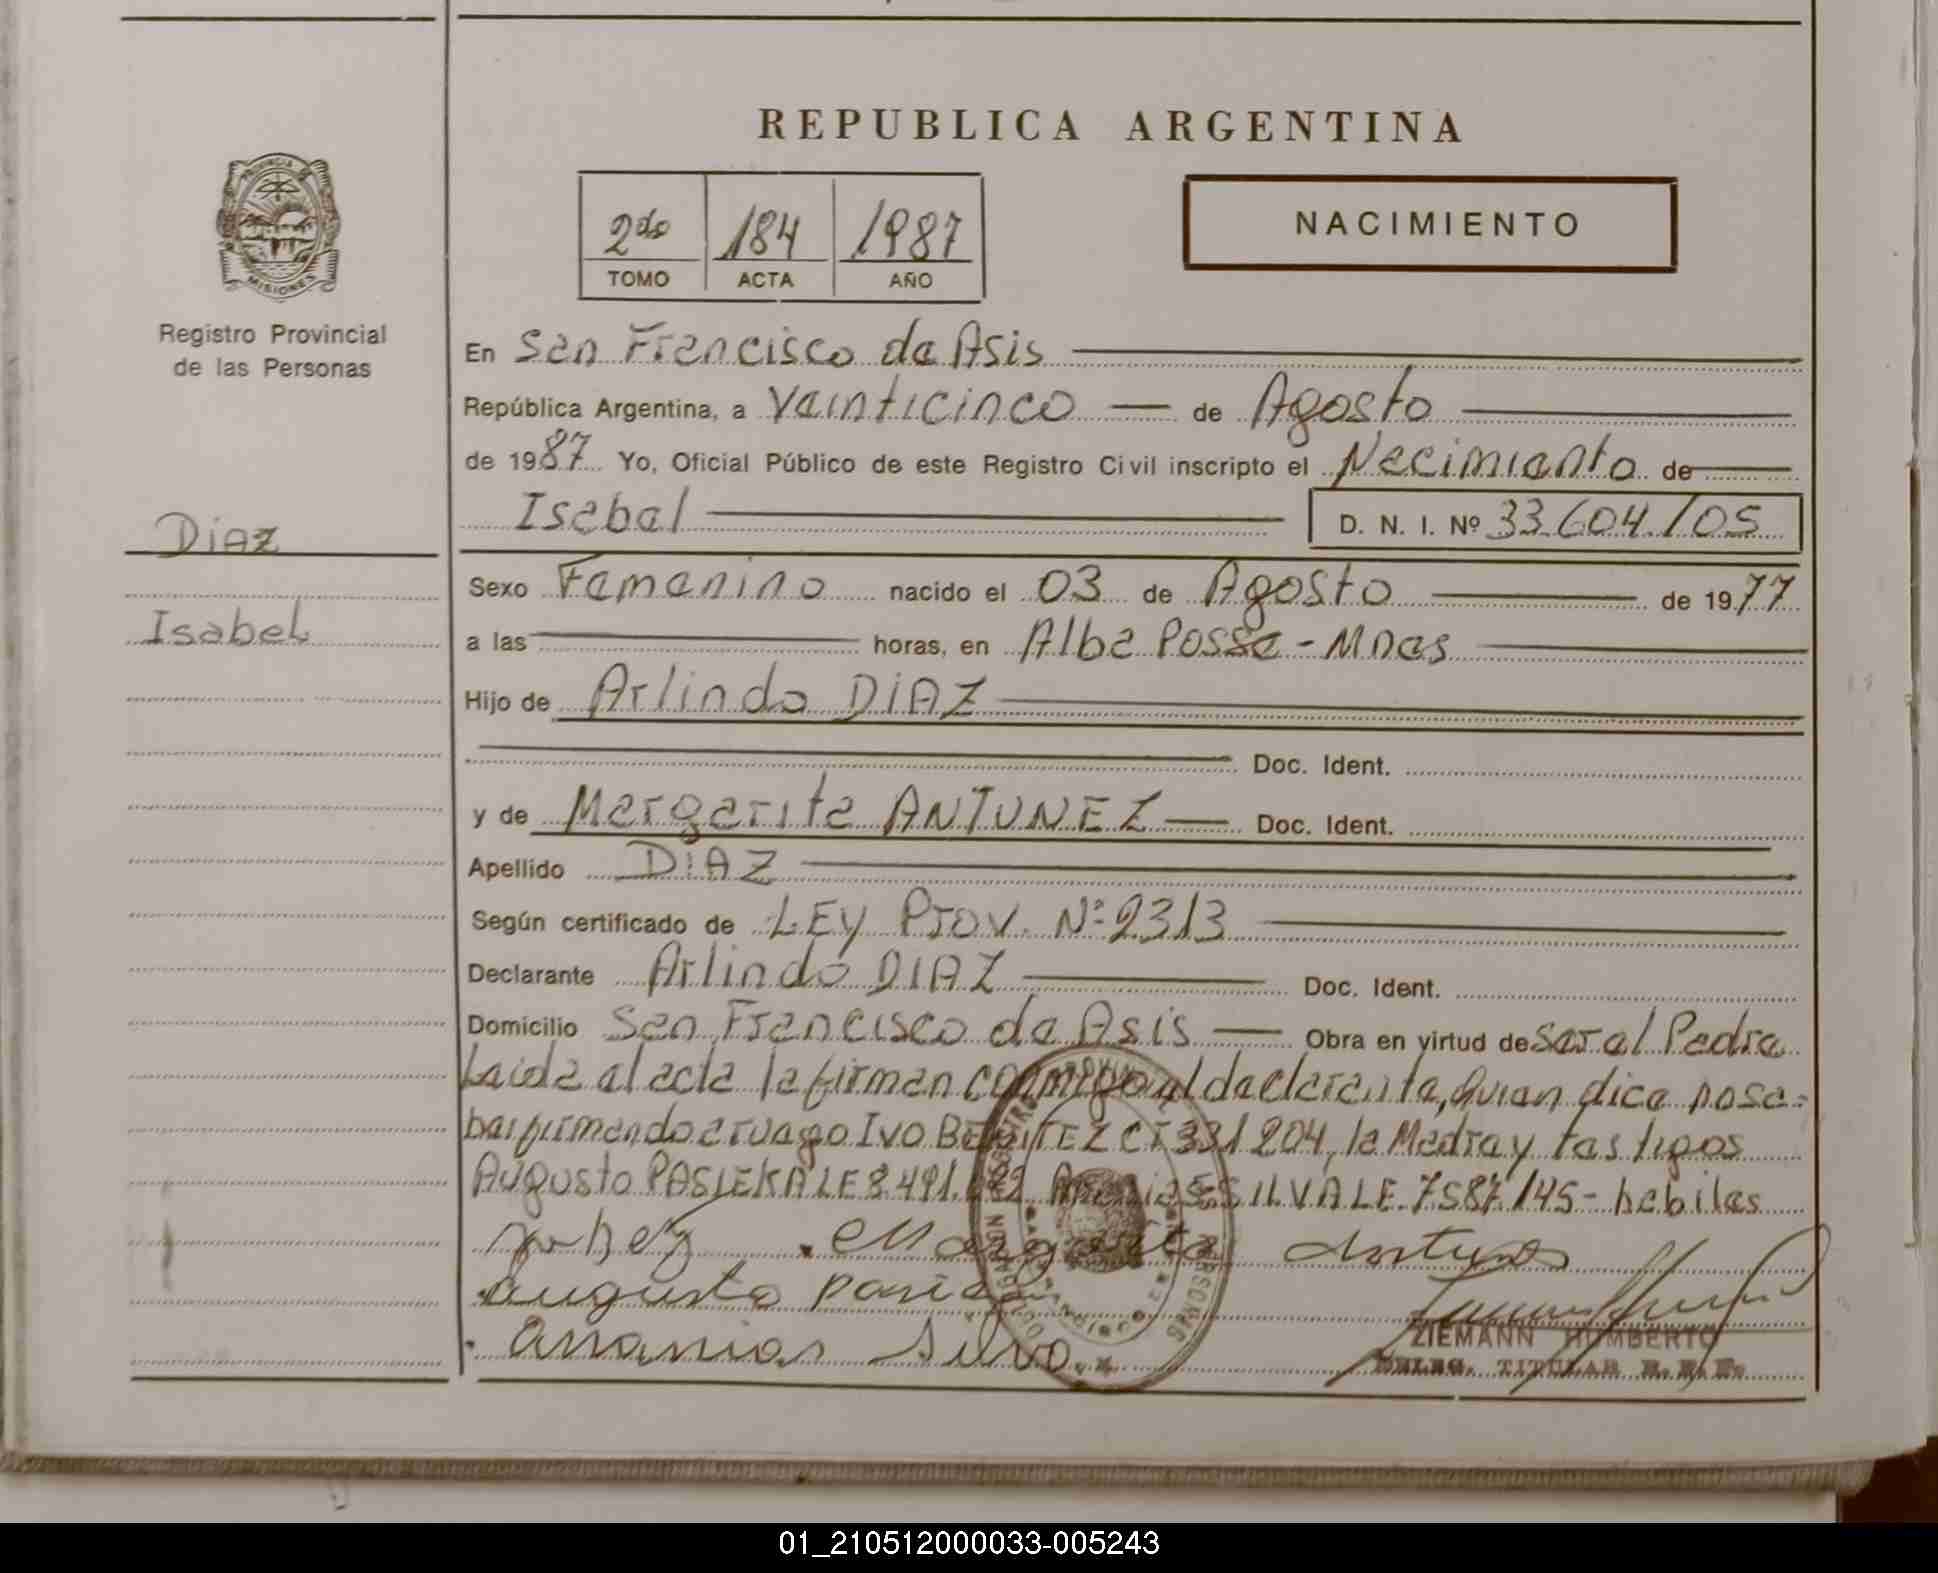 REPUBLICA ARGENTINA
PROVINCIA DE MISIONES
Registro Provincial
de las Personas
2do 184 1987
TOMO ACTA AÑO
NACIMIENTO
En San Francisco de Asis
República Argentina, a Veinticinco de Agosto
de 1987 Yo, Oficial Público de este Registro Civil inscripto el Nacimiento de
Isabel D. N. I. Nº 33.604.105
Diaz
Isabel
Sexo Femenino nacido el 03 de Agosto de 1977
a las horas, en Alba Posse - Mnes
Hijo de Arlindo DIAZ
Doc. Ident.
y de Margarita ANTUNEZ Doc. Ident.
Apellido DIAZ
Según certificado de LEY Prov. Nº 2313
Declarante Arlindo DIAZ Doc. Ident.
Domicilio San Francisco de Asis Obra en virtud de ser el Padre
Leida el acta la firman conmigo el declarante, quien dice no sa=
ber firmando a ruego Ivo BENITEZ CI 331204, la Madre y testigos
Augusto PASIEKA LE 8.491. SILVA LE. 7587145- habiles
Margarita Antunes
Augusto
Ananias Silva
ZIEMANN HUMBERTO
DELEG. TITULAR R. P. P.
01_210512000033-005243